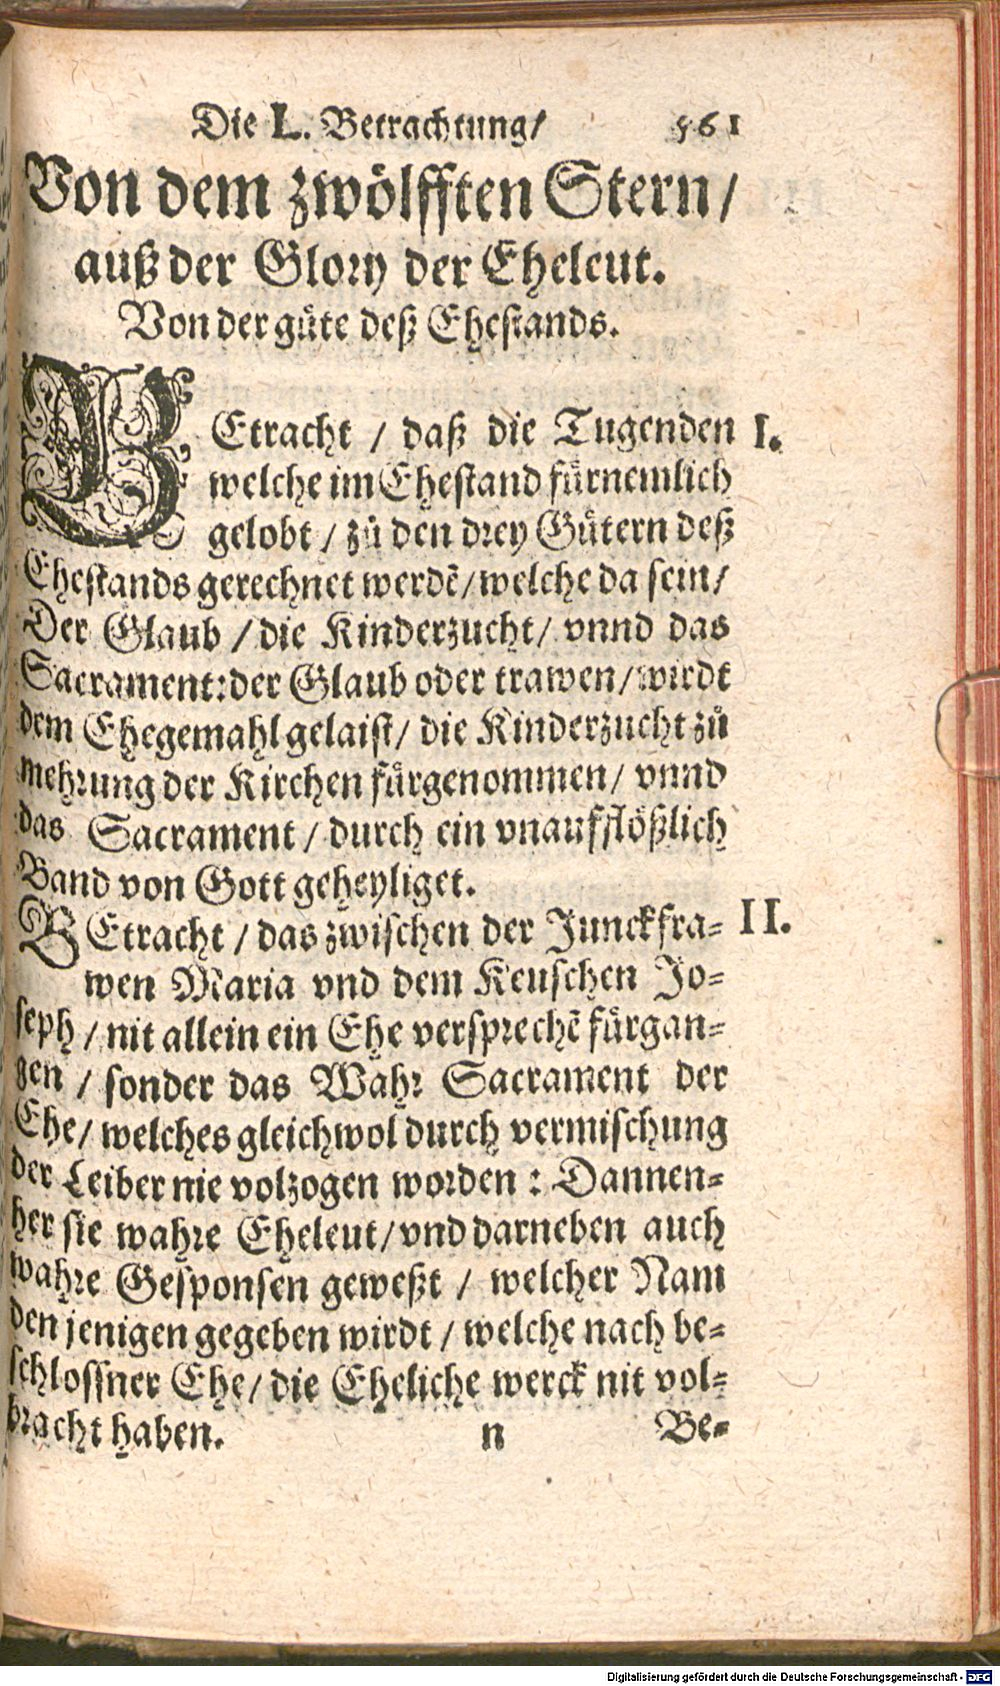 Die L. Betrachtung/ 561
Von dem zwölfften Stern/
auß der Glory der Eheleut.
Von der güte deß Ehestands.
BEtracht / daß die Tugenden I.
welche im Ehestand fürnemlich
gelobt / zů den drey Gütern deß
Ehestands gerechnet werdē/welche da sein/
Der Glaub / die Kinderzucht/ vnnd das
Sacrament:der Glaub oder trawen/wirdt
dem Ehegemahl gelaist/ die Kinderzucht zů
mehrung der Kirchen fürgenommen/ vnnd
das Sacrament / durch ein vnaufflößlich
Band von Gott geheyliget.
BEtracht / das zwischen der Junckfra= II.
wen Maria vnd dem Keuschen Jo=
seph / nit allein ein Ehe versprechē fürgan=
gen / sonder das Wahr Sacrament der
Ehe/ welches gleichwol durch vermischung
der Leiber nie volzogen worden : Dannen=
her sie wahre Eheleut/vnd darneben auch
wahre Gesponsen geweßt / welcher Nam
den jenigen gegeben wirdt / welche nach be=
schlossner Ehe/ die Eheliche werck nit vol=
bracht haben. n Be=
Digitalisierung gefördert durch die Deutsche Forschungsgemeinschaft - DFG